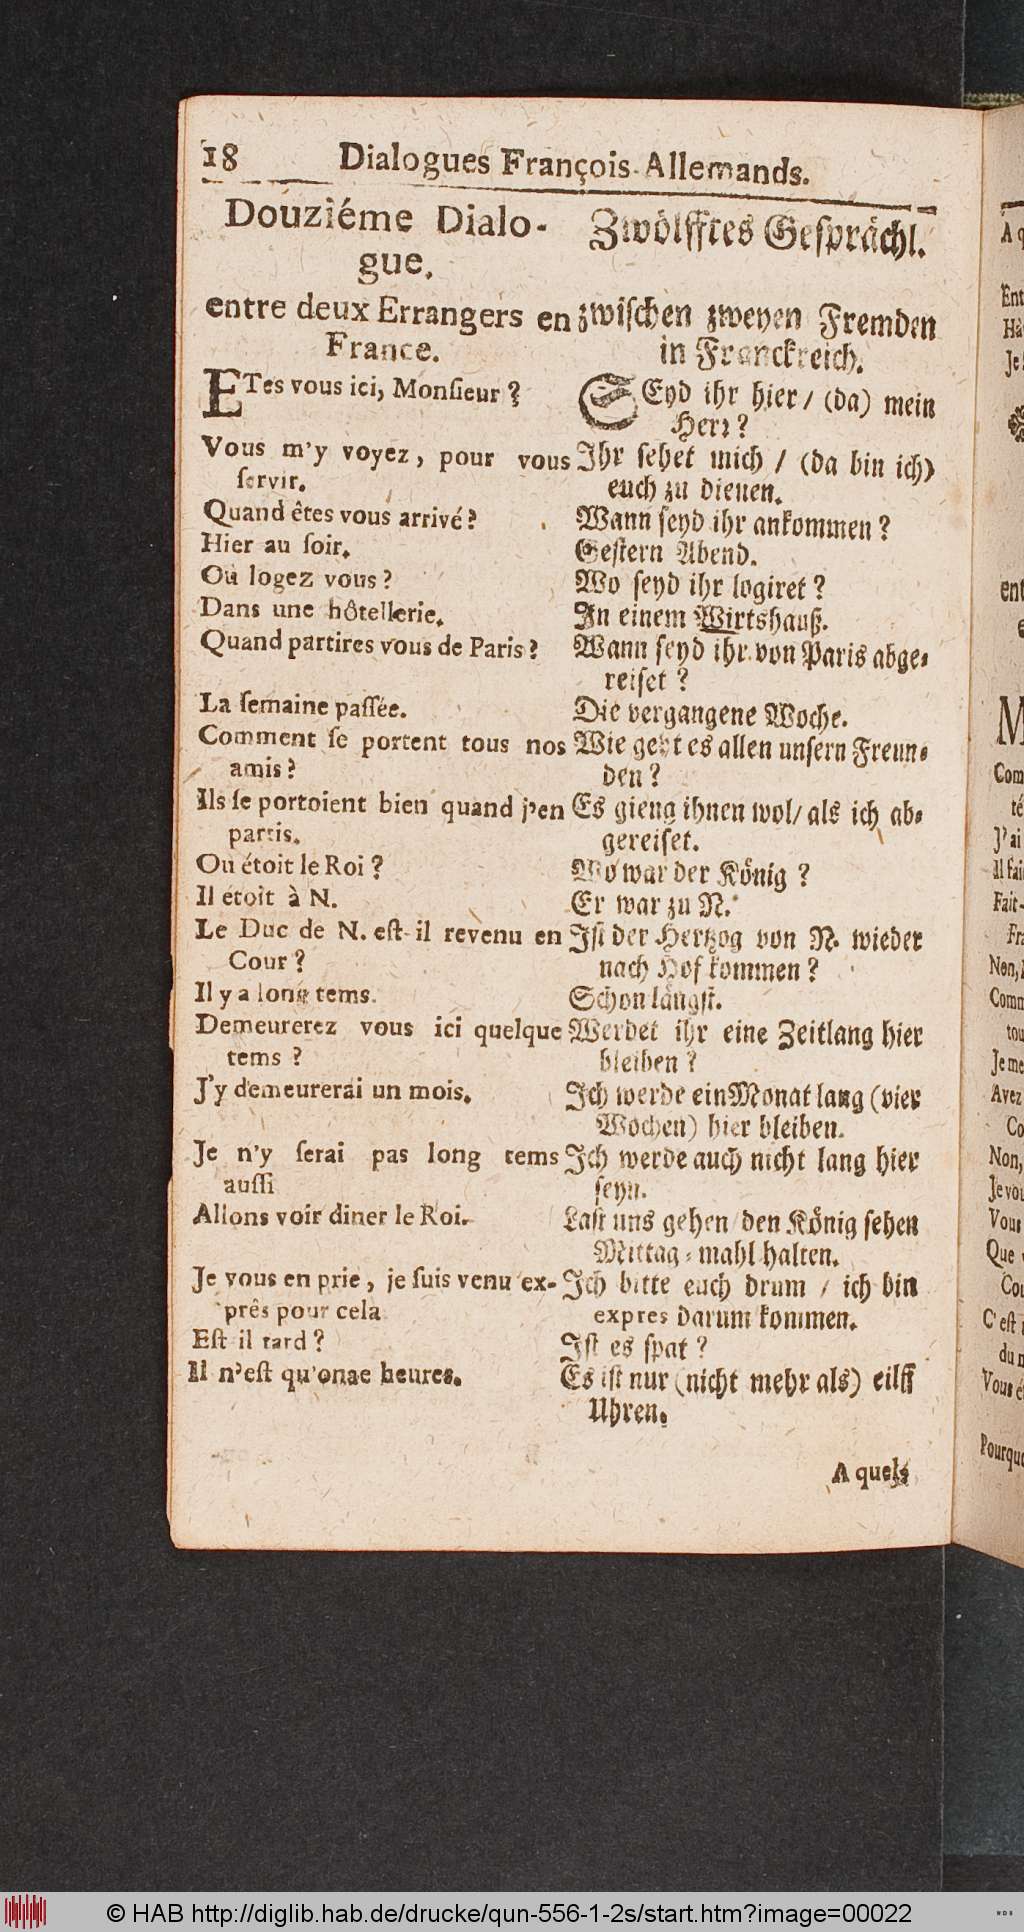 18 Dialogues François-Allemands.
Douziéme Dialo-
gue.
entre deux Errangers en
France.
ETes vous ici, Monſieur ?
Vous m'y voyez, pour vous
ſervir.
Quand êtes vous arrivé ?
Hier au ſoir.
Ou logez vous ?
Dans une hôtellerie.
Quand partires vous de Paris ?
La ſemaine paſſée.
Comment ſe portent tous nos
amis ?
Ils ſe portoient bien quand j'en
partis.
Ou étoit le Roi ?
Il étoit à N.
Le Duc de N. eſt-il revenu en
Cour ?
Il y a long tems.
Demeurerez vous ici quelque
tems ?
J'y demeurerai un mois.
Je n'y ſerai pas long tems
auſſi
Allons voir diner le Roi.
Je vous en prie, je ſuis venu ex-
prês pour cela
Eſt-il tard ?
Il n'eſt qu'onze heures.
Zwölfftes Geſprächl.
zwiſchen zweyen Fremden
in Franckreich.
SEyd ihr hier / (da) mein
Herr ?
Ihr ſehet mich / (da bin ich)
euch zu dienen.
Wann ſeyd ihr ankommen ?
Geſtern Abend.
Wo ſeyd ihr logiret ?
In einem Wirtshauß.
Wann ſeyd ihr von Paris abge-
reiſet ?
Die vergangene Woche.
Wie geht es allen unſern Freun-
den ?
Es gieng ihnen wol / als ich ab-
gereiſet.
Wo war der König ?
Er war zu N.
Iſt der Hertzog von N. wieder
nach Hof kommen ?
Schon längſt.
Werdet ihr eine Zeitlang hier
bleiben ?
Ich werde ein Monat lang (vier
Wochen) hier bleiben.
Ich werde auch nicht lang hier
ſeyn.
Laſt uns gehen den König ſehen
Mittag-mahl halten.
Ich bitte euch drum / ich bin
expres darum kommen.
Iſt es ſpat ?
Es iſt nur (nicht mehr als) eilff
Uhren.
A quels
© HAB http://diglib.hab.de/drucke/qun-556-1-2s/start.htm?image=00022